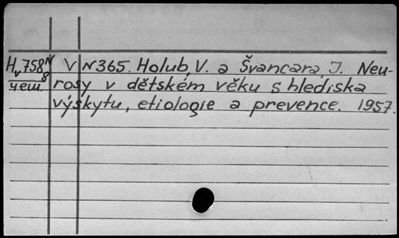 H 758 V N 365. Holub, V. a Švancara, J. Neu-
rosy v dětském věku s hlediska
výskytu, etiologie a prevence. 1957.